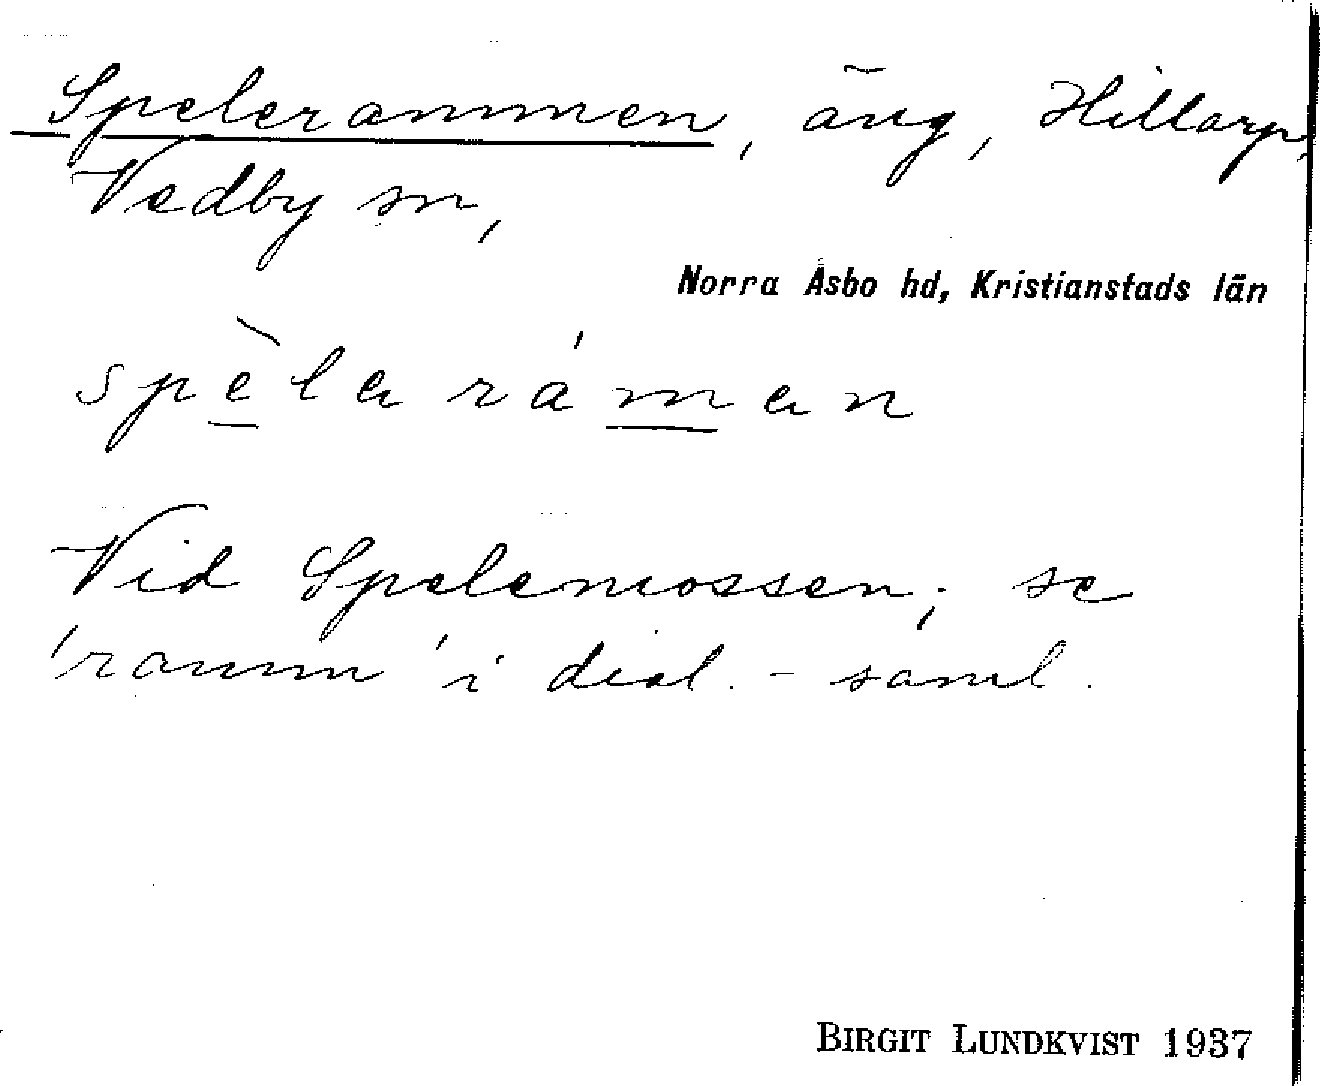 Spelerammen, äng, Hillarp,
Vedby sn,
Norra Åsbo hd, Kristianstads län
spèlaráman
Vid Spelemossen; se
'ramm' i dial.-saml.
BIRGIT LUNDKVIST 1937